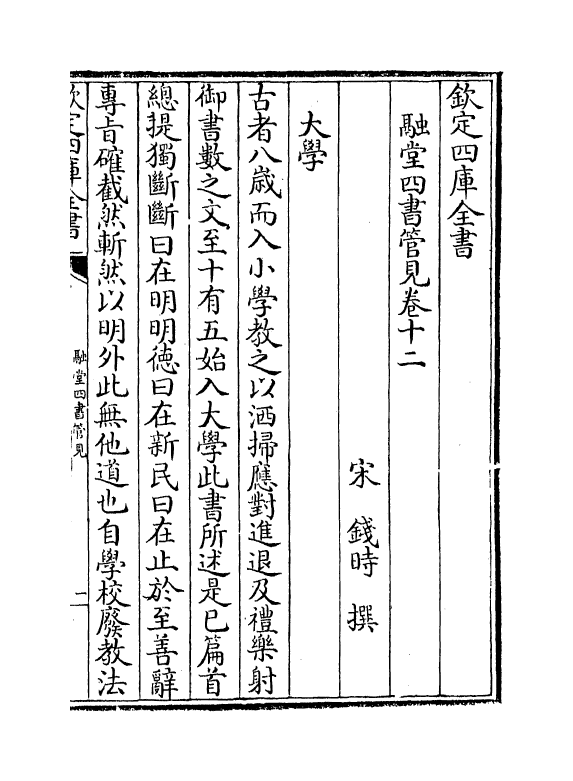 欽定四庫全書
融堂四書管見卷十二
宋　錢時　撰
大學
古者八歲而入小學教之以洒掃應對進退及禮樂射
御書數之文至十有五始入大學此書所述是已篇首
總提獨斷斷曰在明明德曰在新民曰在止於至善辭
專旨確截然斬然以明外此無他道也自學校廢教法
欽定四庫全書
融堂四書管見